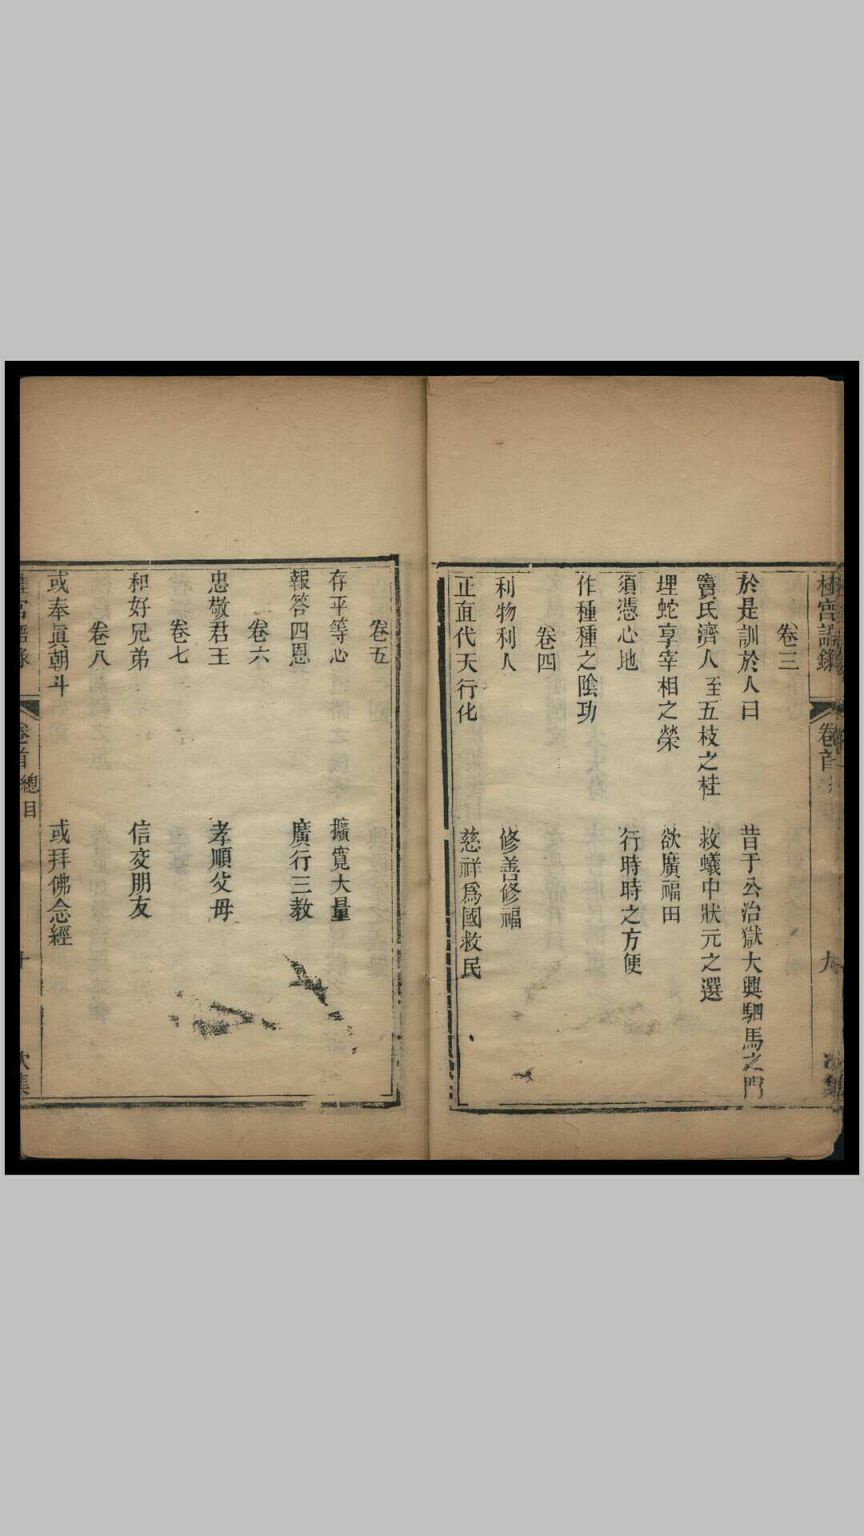 卷三
於是訓於人曰　昔于公治獄大興駟馬之門
竇氏濟人　救蟻中狀元之選
至五枝之桂
埋蛇享宰相之榮　欲廣福田
須憑心地　行時時之方便
作種種之陰功
卷四
利物利人　修善修福
正直代天行化　慈祥為國救民
卷五
存平等心　擴寬大量
報答四恩　廣行三教
卷六
忠敬君王　孝順父母
卷七
和好兄弟　信交朋友
卷八
或奉眞朝斗　或拜佛念經
卷首 總目